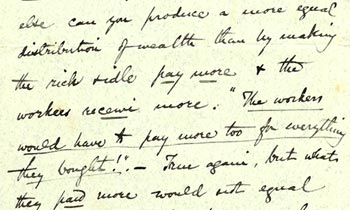 else can you produce a more equal
distribution of wealth than by making
the rich & idle pay more & the
workers receive more. "The workers
would have to pay more too for everything
they bought!" — True again, but what
they paid more would not equal